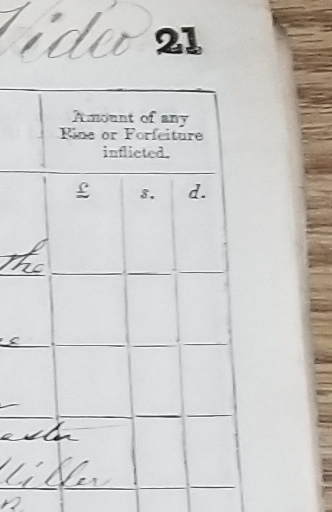 Video 21
Amount of any
Fine or Forfeiture
inflicted.
£ s. d.
the
Miller